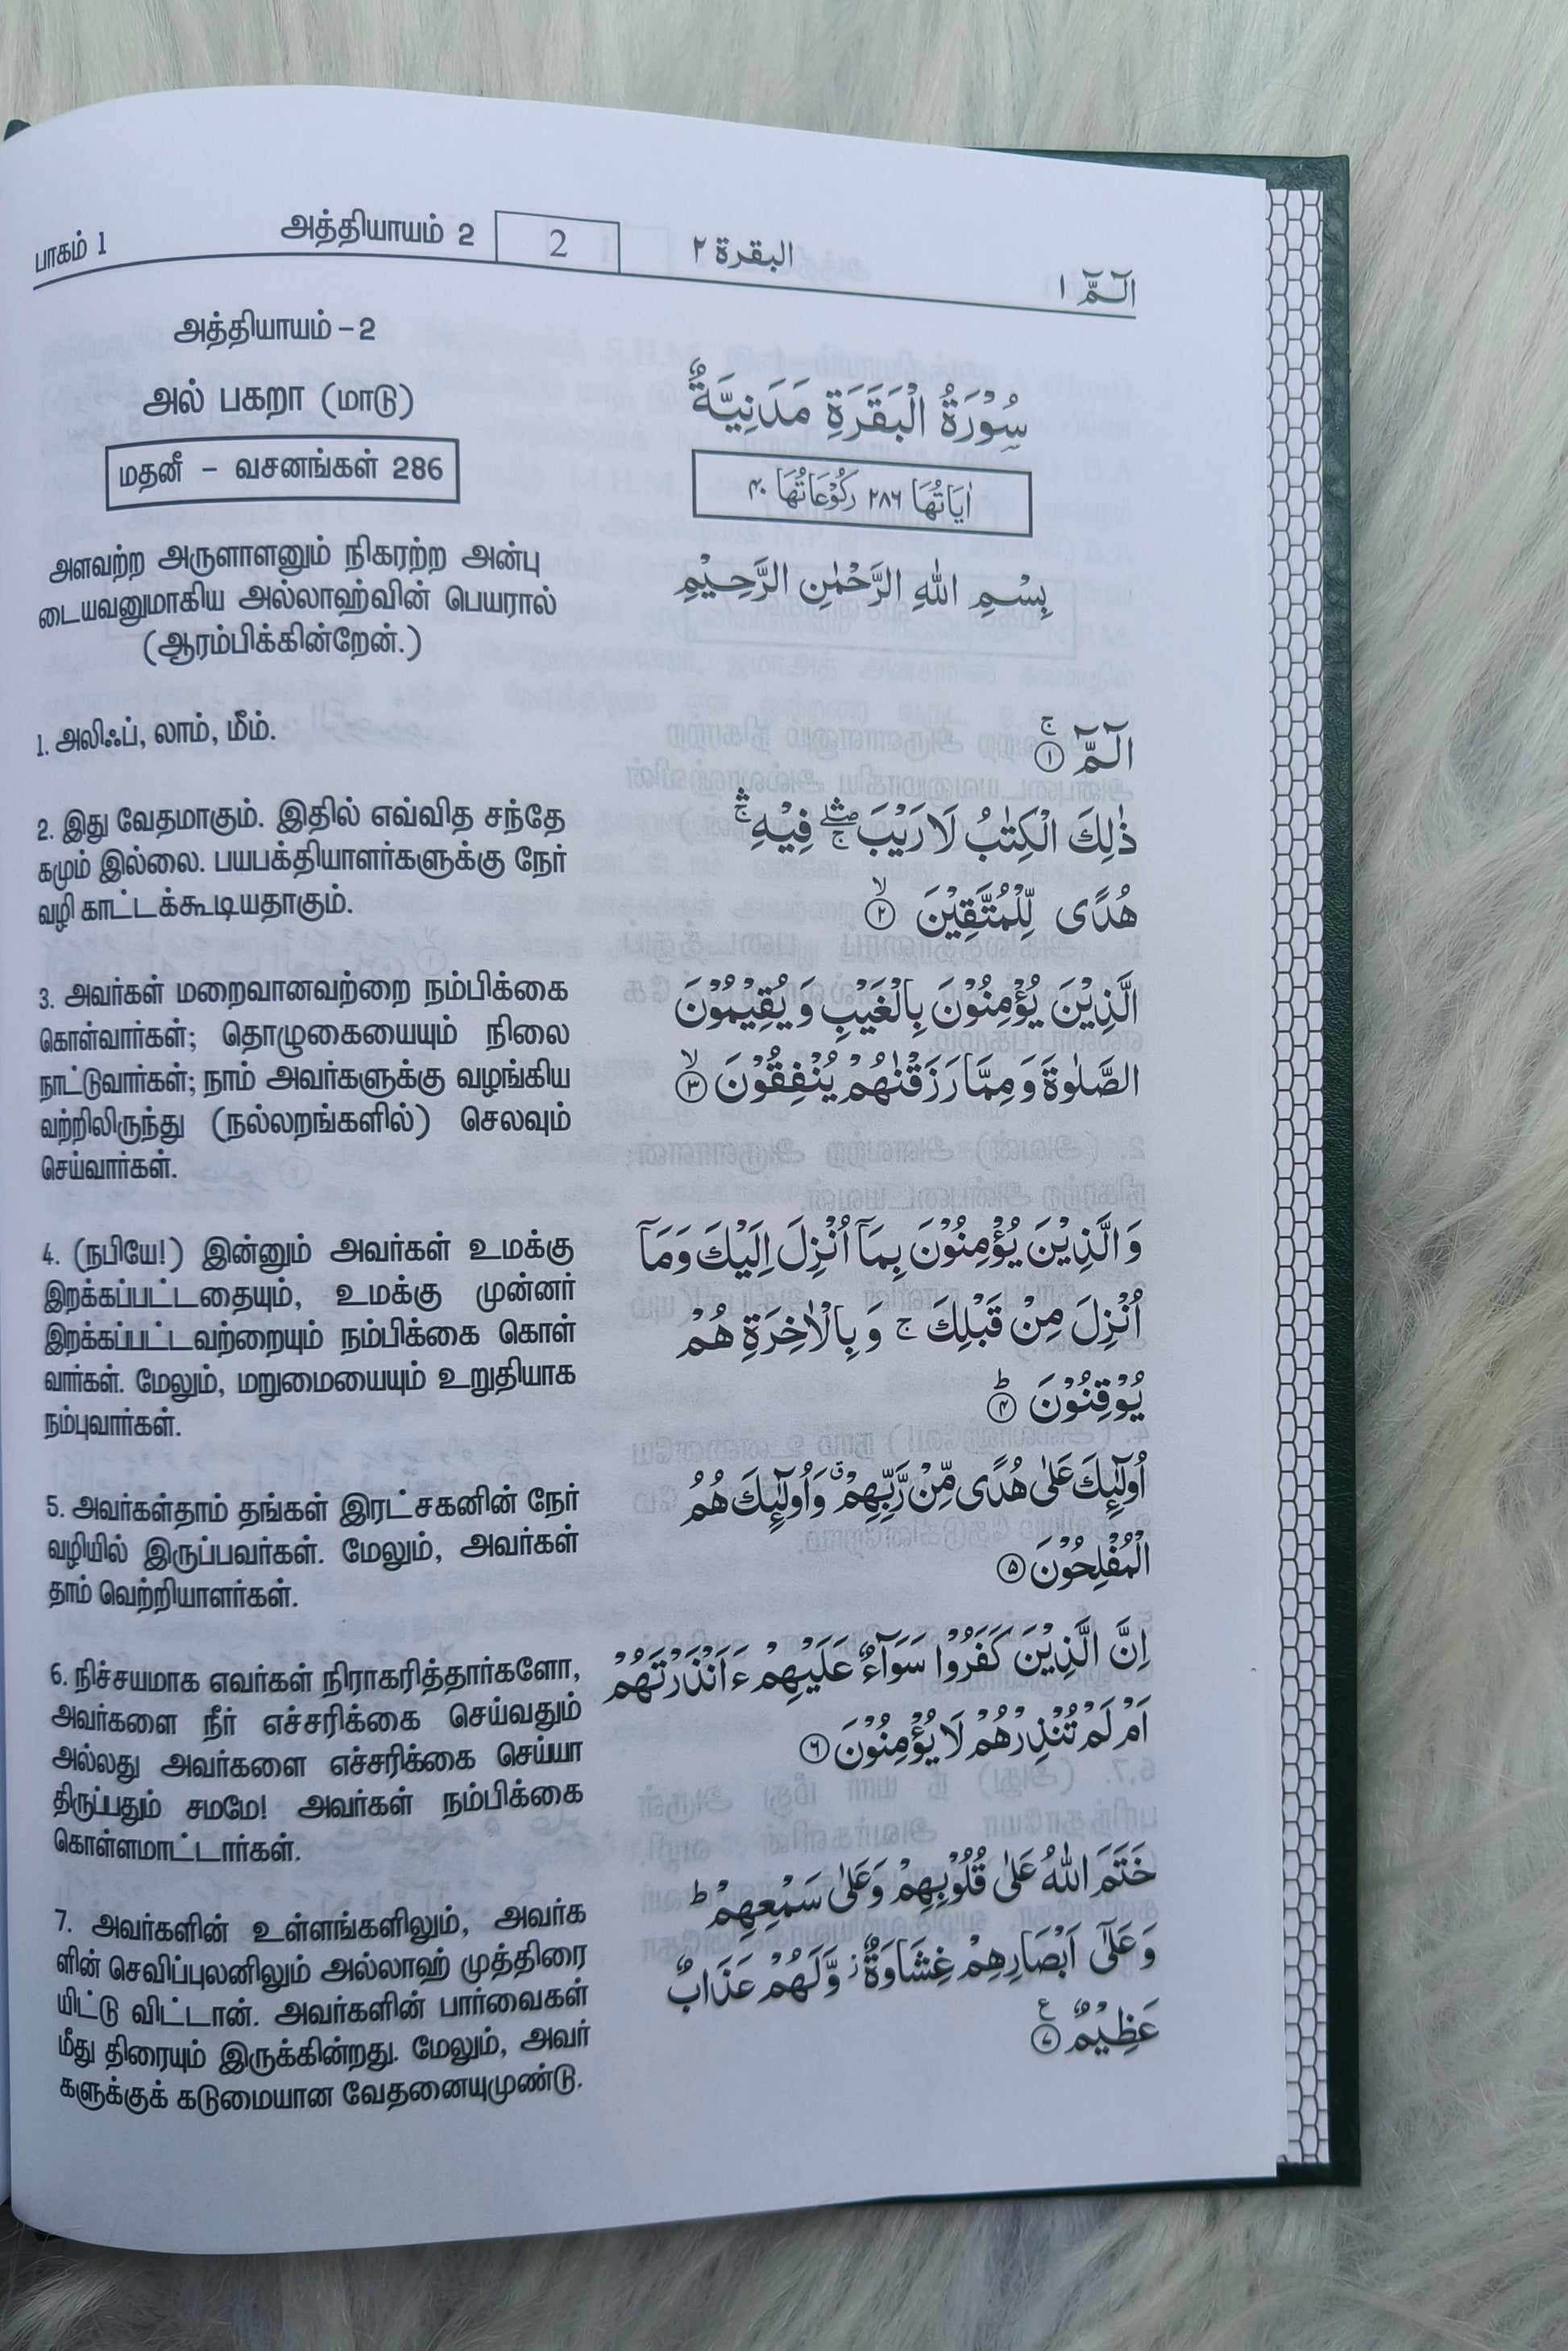 பாகம் 1
அத்தியாயம் 2
2
البقرة ٢
الٓمّٓ ١
அத்தியாயம் – 2
அல் பகறா (மாடு)
மதனீ – வசனங்கள் 286
அளவற்ற அருளாளனும் நிகரற்ற அன்பு
டையவனுமாகிய அல்லாஹ்வின் பெயரால்
(ஆரம்பிக்கின்றேன்.)
1. அலிஃப், லாம், மீம்.
2. இது வேதமாகும். இதில் எவ்வித சந்தே
கமும் இல்லை. பயபக்தியாளர்களுக்கு நேர்
வழி காட்டக்கூடியதாகும்.
3. அவர்கள் மறைவானவற்றை நம்பிக்கை
கொள்வார்கள்; தொழுகையையும் நிலை
நாட்டுவார்கள்; நாம் அவர்களுக்கு வழங்கிய
வற்றிலிருந்து (நல்லறங்களில்) செலவும்
செய்வார்கள்.
4. (நபியே!) இன்னும் அவர்கள் உமக்கு
இறக்கப்பட்டதையும், உமக்கு முன்னர்
இறக்கப்பட்டவற்றையும் நம்பிக்கை கொள்
வார்கள். மேலும், மறுமையையும் உறுதியாக
நம்புவார்கள்.
5. அவர்கள்தாம் தங்கள் இரட்சகனின் நேர்
வழியில் இருப்பவர்கள். மேலும், அவர்கள்
தாம் வெற்றியாளர்கள்.
6. நிச்சயமாக எவர்கள் நிராகரித்தார்களோ,
அவர்களை நீர் எச்சரிக்கை செய்வதும்
அல்லது அவர்களை எச்சரிக்கை செய்யா
திருப்பதும் சமமே! அவர்கள் நம்பிக்கை
கொள்ளமாட்டார்கள்.
7. அவர்களின் உள்ளங்களிலும், அவர்க
ளின் செவிப்புலனிலும் அல்லாஹ் முத்திரை
யிட்டு விட்டான். அவர்களின் பார்வைகள்
மீது திரையும் இருக்கின்றது. மேலும், அவர்
களுக்குக் கடுமையான வேதனையுமுண்டு.
سُوْرَةُ الْبَقَرَةِ مَدَنِيَّةٌ
اٰيَاتُهَا ٢٨٦ رُكُوْعَاتُهَا ۴۰
بِسْمِ اللّٰهِ الرَّحْمٰنِ الرَّحِيْمِ
الٓمّٓ ۚ ﴿١﴾
ذٰلِكَ الْكِتٰبُ لَا رَيْبَ ۛۖۚ فِيْهِ ۛۚ
هُدًى لِّلْمُتَّقِيْنَ ۙ ﴿٢﴾
الَّذِيْنَ يُؤْمِنُوْنَ بِالْغَيْبِ وَيُقِيْمُوْنَ
الصَّلٰوةَ وَمِمَّا رَزَقْنٰهُمْ يُنْفِقُوْنَ ۙ ﴿٣﴾
وَالَّذِيْنَ يُؤْمِنُوْنَ بِمَآ اُنْزِلَ اِلَيْكَ وَمَآ
اُنْزِلَ مِنْ قَبْلِكَ ج وَبِالْاٰخِرَةِ هُمْ
يُوْقِنُوْنَ ؕ ﴿۴﴾
اُولٰٓئِكَ عَلٰى هُدًى مِّنْ رَّبِّهِمْ ۗ وَاُولٰٓئِكَ هُمُ
الْمُفْلِحُوْنَ ﴿۵﴾
اِنَّ الَّذِيْنَ كَفَرُوْا سَوَآءٌ عَلَيْهِمْ ءَاَنْذَرْتَهُمْ
اَمْ لَمْ تُنْذِرْهُمْ لَا يُؤْمِنُوْنَ ﴿٦﴾
خَتَمَ اللّٰهُ عَلٰى قُلُوْبِهِمْ وَعَلٰى سَمْعِهِمْ ؕ
وَعَلٰٓى اَبْصَارِهِمْ غِشَاوَةٌ ز وَّلَهُمْ عَذَابٌ
عَظِيْمٌ ع ﴿٧﴾